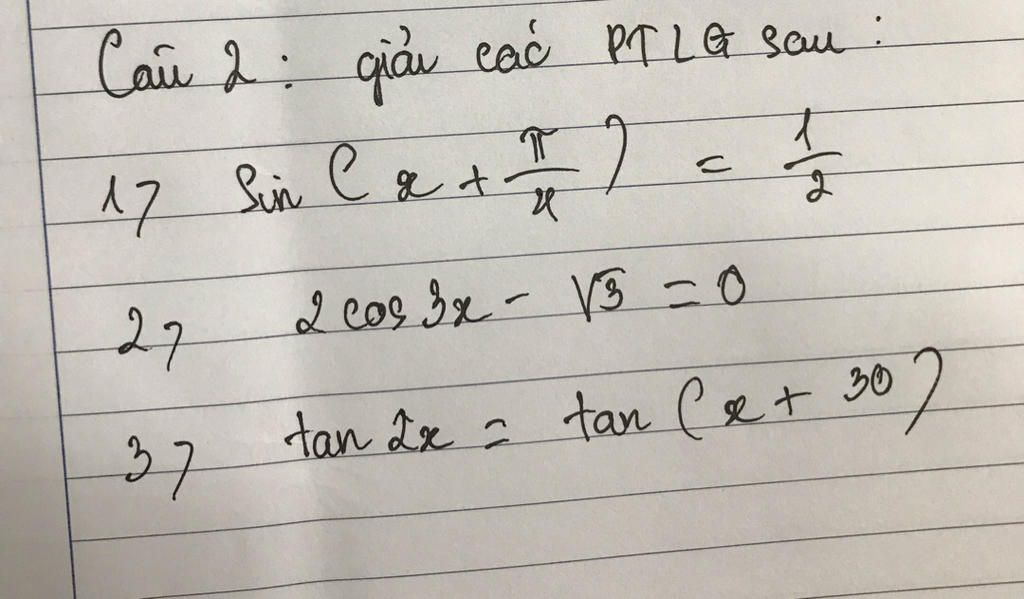 Câu 2: giải các PTLG sau:
1) Sin (x + π/4) = 1/2
2) 2 cos 3x - √3 = 0
3) tan 2x = tan (x + 30)